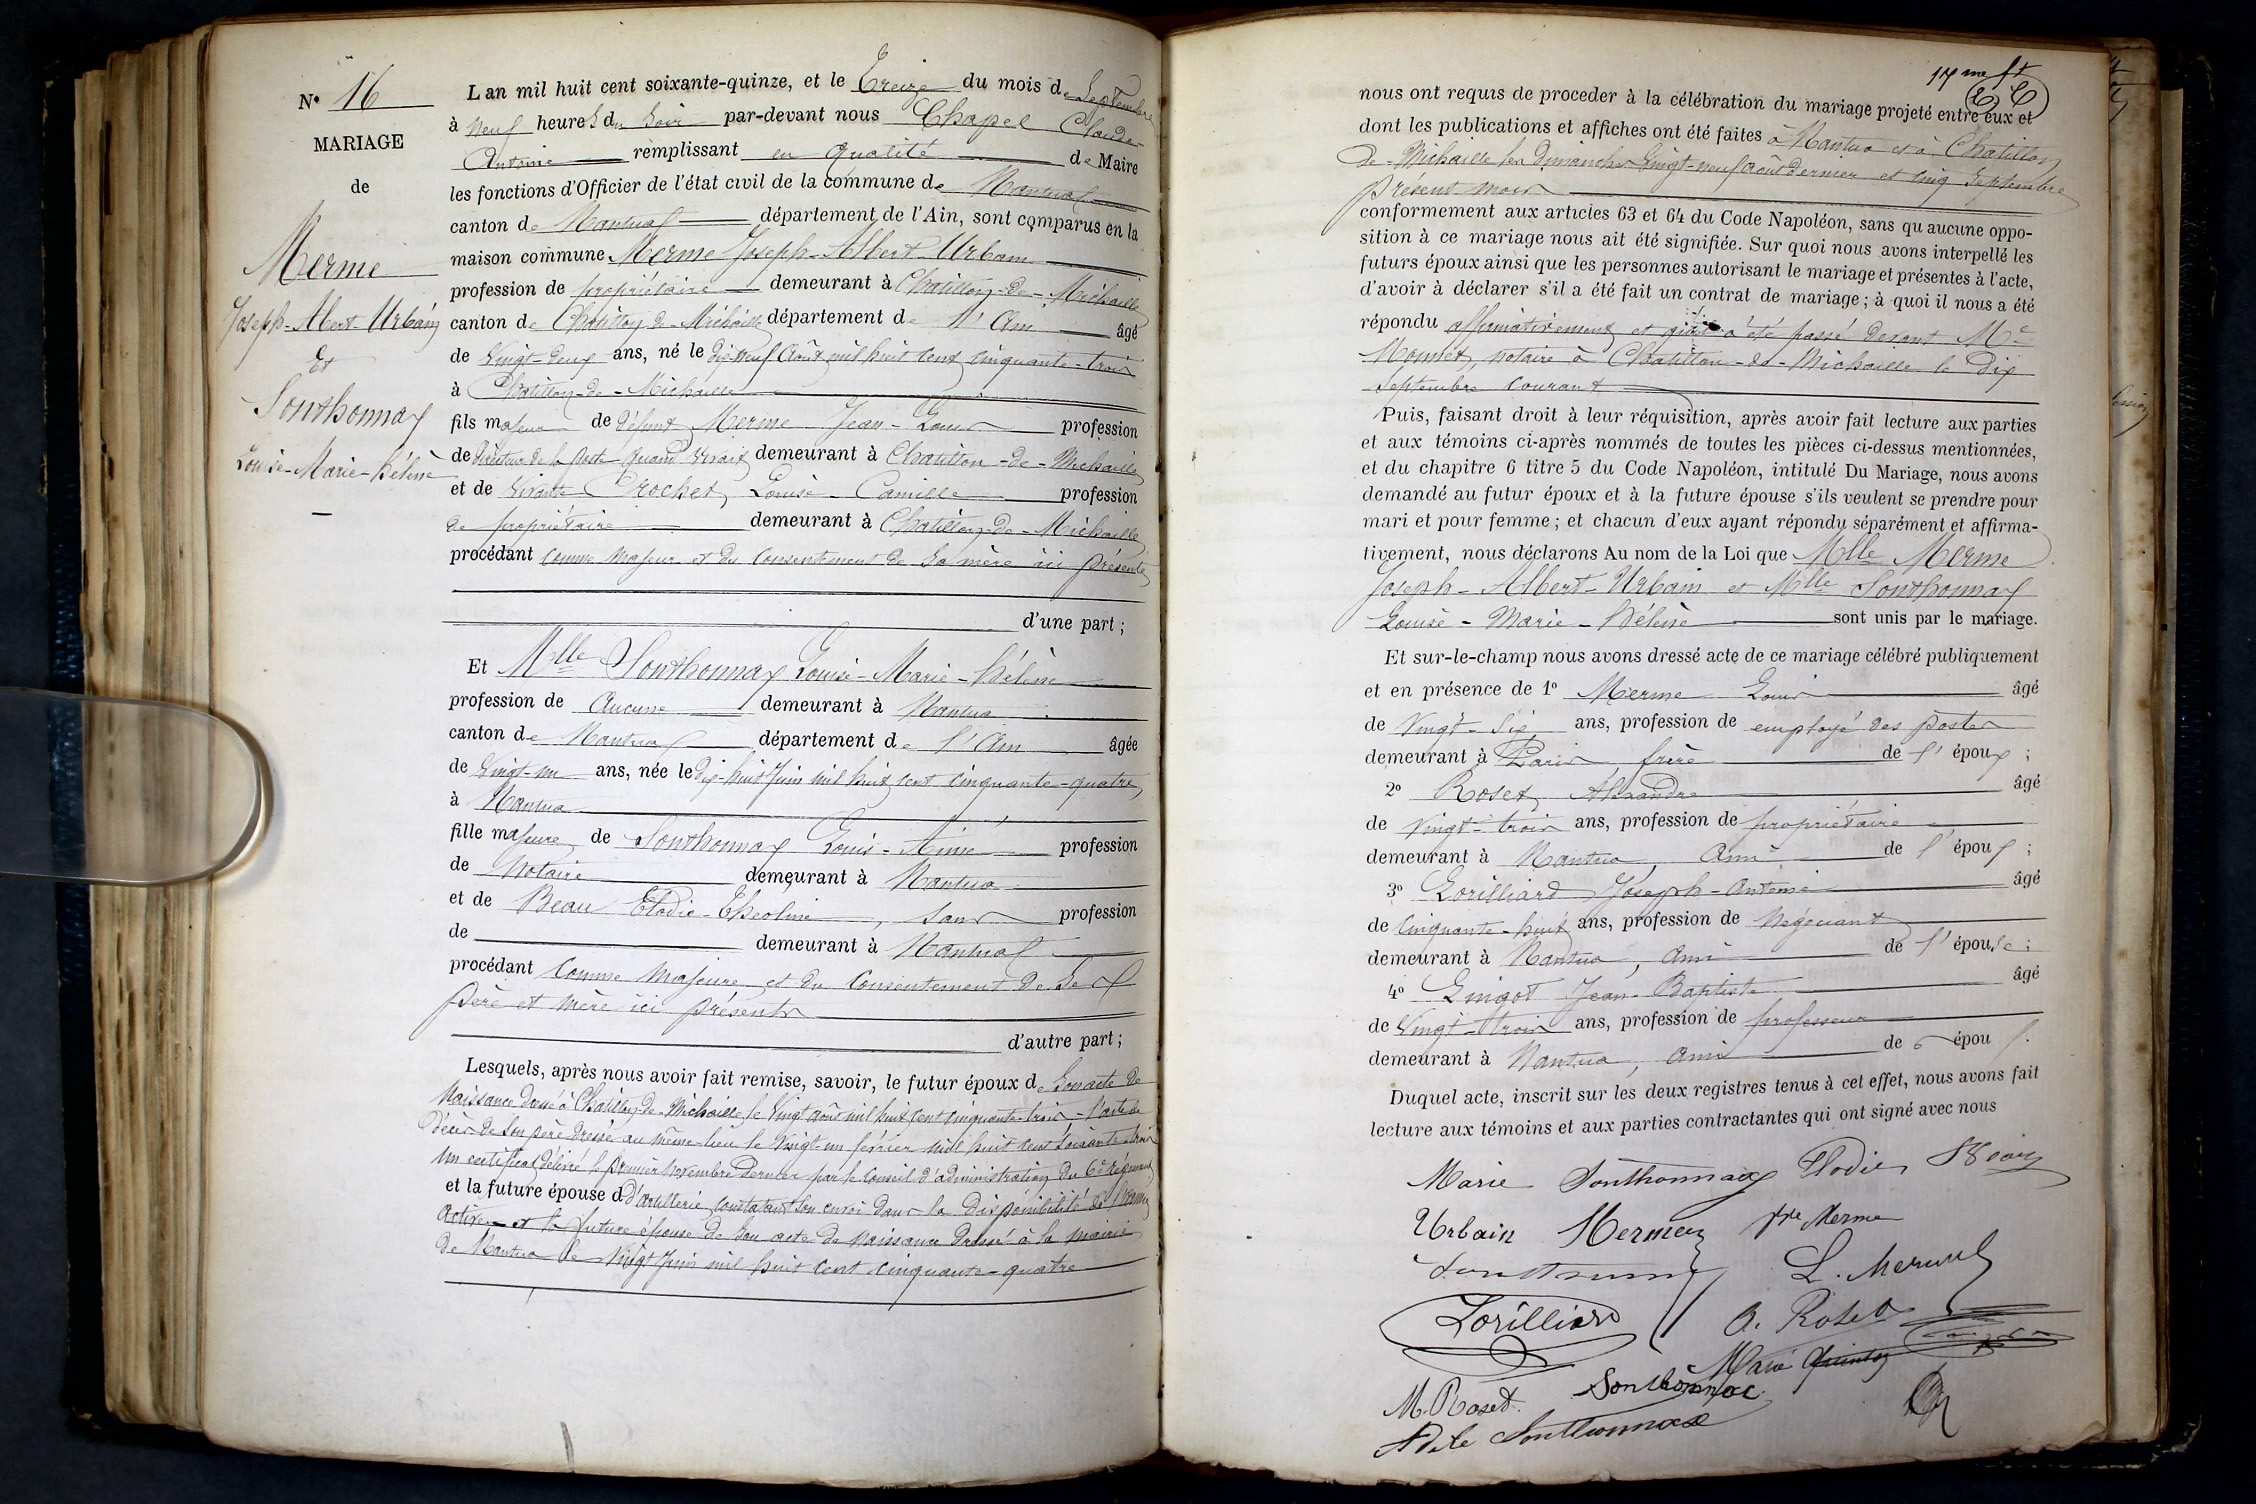 Nº 16
MARIAGE
de
Merme
Joseph-Albert-Urbain
Et
Sonthonnax
Louise-Marie-hélène
L an mil huit cent soixante-quinze, et le Treize du mois de Septembre
à neuf heures du soir par-devant nous Chapel Claude
Antoine remplissant en qualité de Maire
les fonctions d'Officier de l'état civil de la commune de Nantua
canton de Nantua département de l'Ain, sont comparus en la
maison commune Merme Joseph-Albert-Urbain
profession de propriétaire demeurant à Chatillon-de-Michaille
canton de Chatillon-de-Michaille département de l'Ain âgé
de vingt-deux ans, né le dix-neuf août mil huit cent cinquante-trois
à Chatillon-de-Michaille
fils majeur de défunt Merme Jean-Louis profession
de Directeur de la Poste quand vivait demeurant à Chatillon-de-Michaille
et de vivante Crochet Louise-Camille profession
de propriétaire demeurant à Chatillon-de-Michaille
procédant comme majeur et du consentement de sa mère ici présente
d'une part ;
Et Mlle Sonthonnax Louise-Marie-hélène
profession de aucune demeurant à Nantua
canton de Nantua département de l'Ain âgée
de vingt-un ans, née le dix-huit Juin mil huit cent cinquante-quatre
à Nantua
fille majeure de Sonthonnax Louis-Aimé profession
de Notaire demeurant à Nantua
et de Beau Elodie-Théoline, sans profession
de demeurant à Nantua
procédant comme majeure et du consentement de ses
père et mère ici présents
d'autre part ;
Lesquels, après nous avoir fait remise, savoir, le futur époux de son acte de
Naissance dressé à Chatillon-de-Michaille le vingt août mil huit cent cinquante-trois, - l'acte de
décès de son père dressé au même lieu le vingt-un février mil huit cent soixante-trois
Un certificat délivré le premier novembre dernier par le Conseil d'administration du 6e régiment
et la future épouse d d'artillerie constatant son envoi dans la disponibilité de l'armée
active - et la future épouse de son acte de naissance dressé à la mairie
de Nantua le vingt Juin mil huit cent cinquante-quatre
17me ft
nous ont requis de proceder à la célébration du mariage projeté entre eux et
dont les publications et affiches ont été faites à Nantua et à Chatillon
de-Michaille les Dimanches vingt-neuf août dernier et cinq Septembre
présent mois
conformement aux articles 63 et 64 du Code Napoléon, sans qu aucune oppo-
sition à ce mariage nous ait été signifiée. Sur quoi nous avons interpellé les
futurs époux ainsi que les personnes autorisant le mariage et présentes à l'acte,
d'avoir à déclarer s'il a été fait un contrat de mariage ; à quoi il nous a été
répondu affirmativement et qu'il a été passé devant Me
Monnet, notaire à Chatillon-de-Michaille le dix
Septembre courant
Puis, faisant droit à leur réquisition, après avoir fait lecture aux parties
et aux témoins ci-après nommés de toutes les pièces ci-dessus mentionnées,
et du chapitre 6 titre 5 du Code Napoléon, intitulé Du Mariage, nous avons
demandé au futur époux et à la future épouse s'ils veulent se prendre pour
mari et pour femme ; et chacun d'eux ayant répondu séparément et affirma-
tivement, nous déclarons Au nom de la Loi que Mlle Merme
Joseph-Albert-Urbain et Mlle Sonthonnax
Louise-Marie-Hélène sont unis par le mariage.
Et sur-le-champ nous avons dressé acte de ce mariage célébré publiquement
et en présence de 1º Merme Louis âgé
de vingt-six ans, profession de employé des postes
demeurant à Paris, frère de l'époux ;
2º Roset Alexandre âgé
de vingt-trois ans, profession de propriétaire
demeurant à Nantua, Ami de l'époux ;
3º Lorilliard Joseph-Antoine âgé
de cinquante-huit ans, profession de Négociant
demeurant à Nantua, ami de l'épouse ;
4º Guigot Jean-Baptiste âgé
de vingt-trois ans, profession de professeur
demeurant à Nantua, ami de épou
Duquel acte, inscrit sur les deux registres tenus à cet effet, nous avons fait
lecture aux témoins et aux parties contractantes qui ont signé avec nous
Marie Sonthonnax Elodie
Urbain Merme Merme
L. Merme
Lorilliard
A. Roset
Marie
M. Roset. Sonthonnax
Adèle Sonthonnax